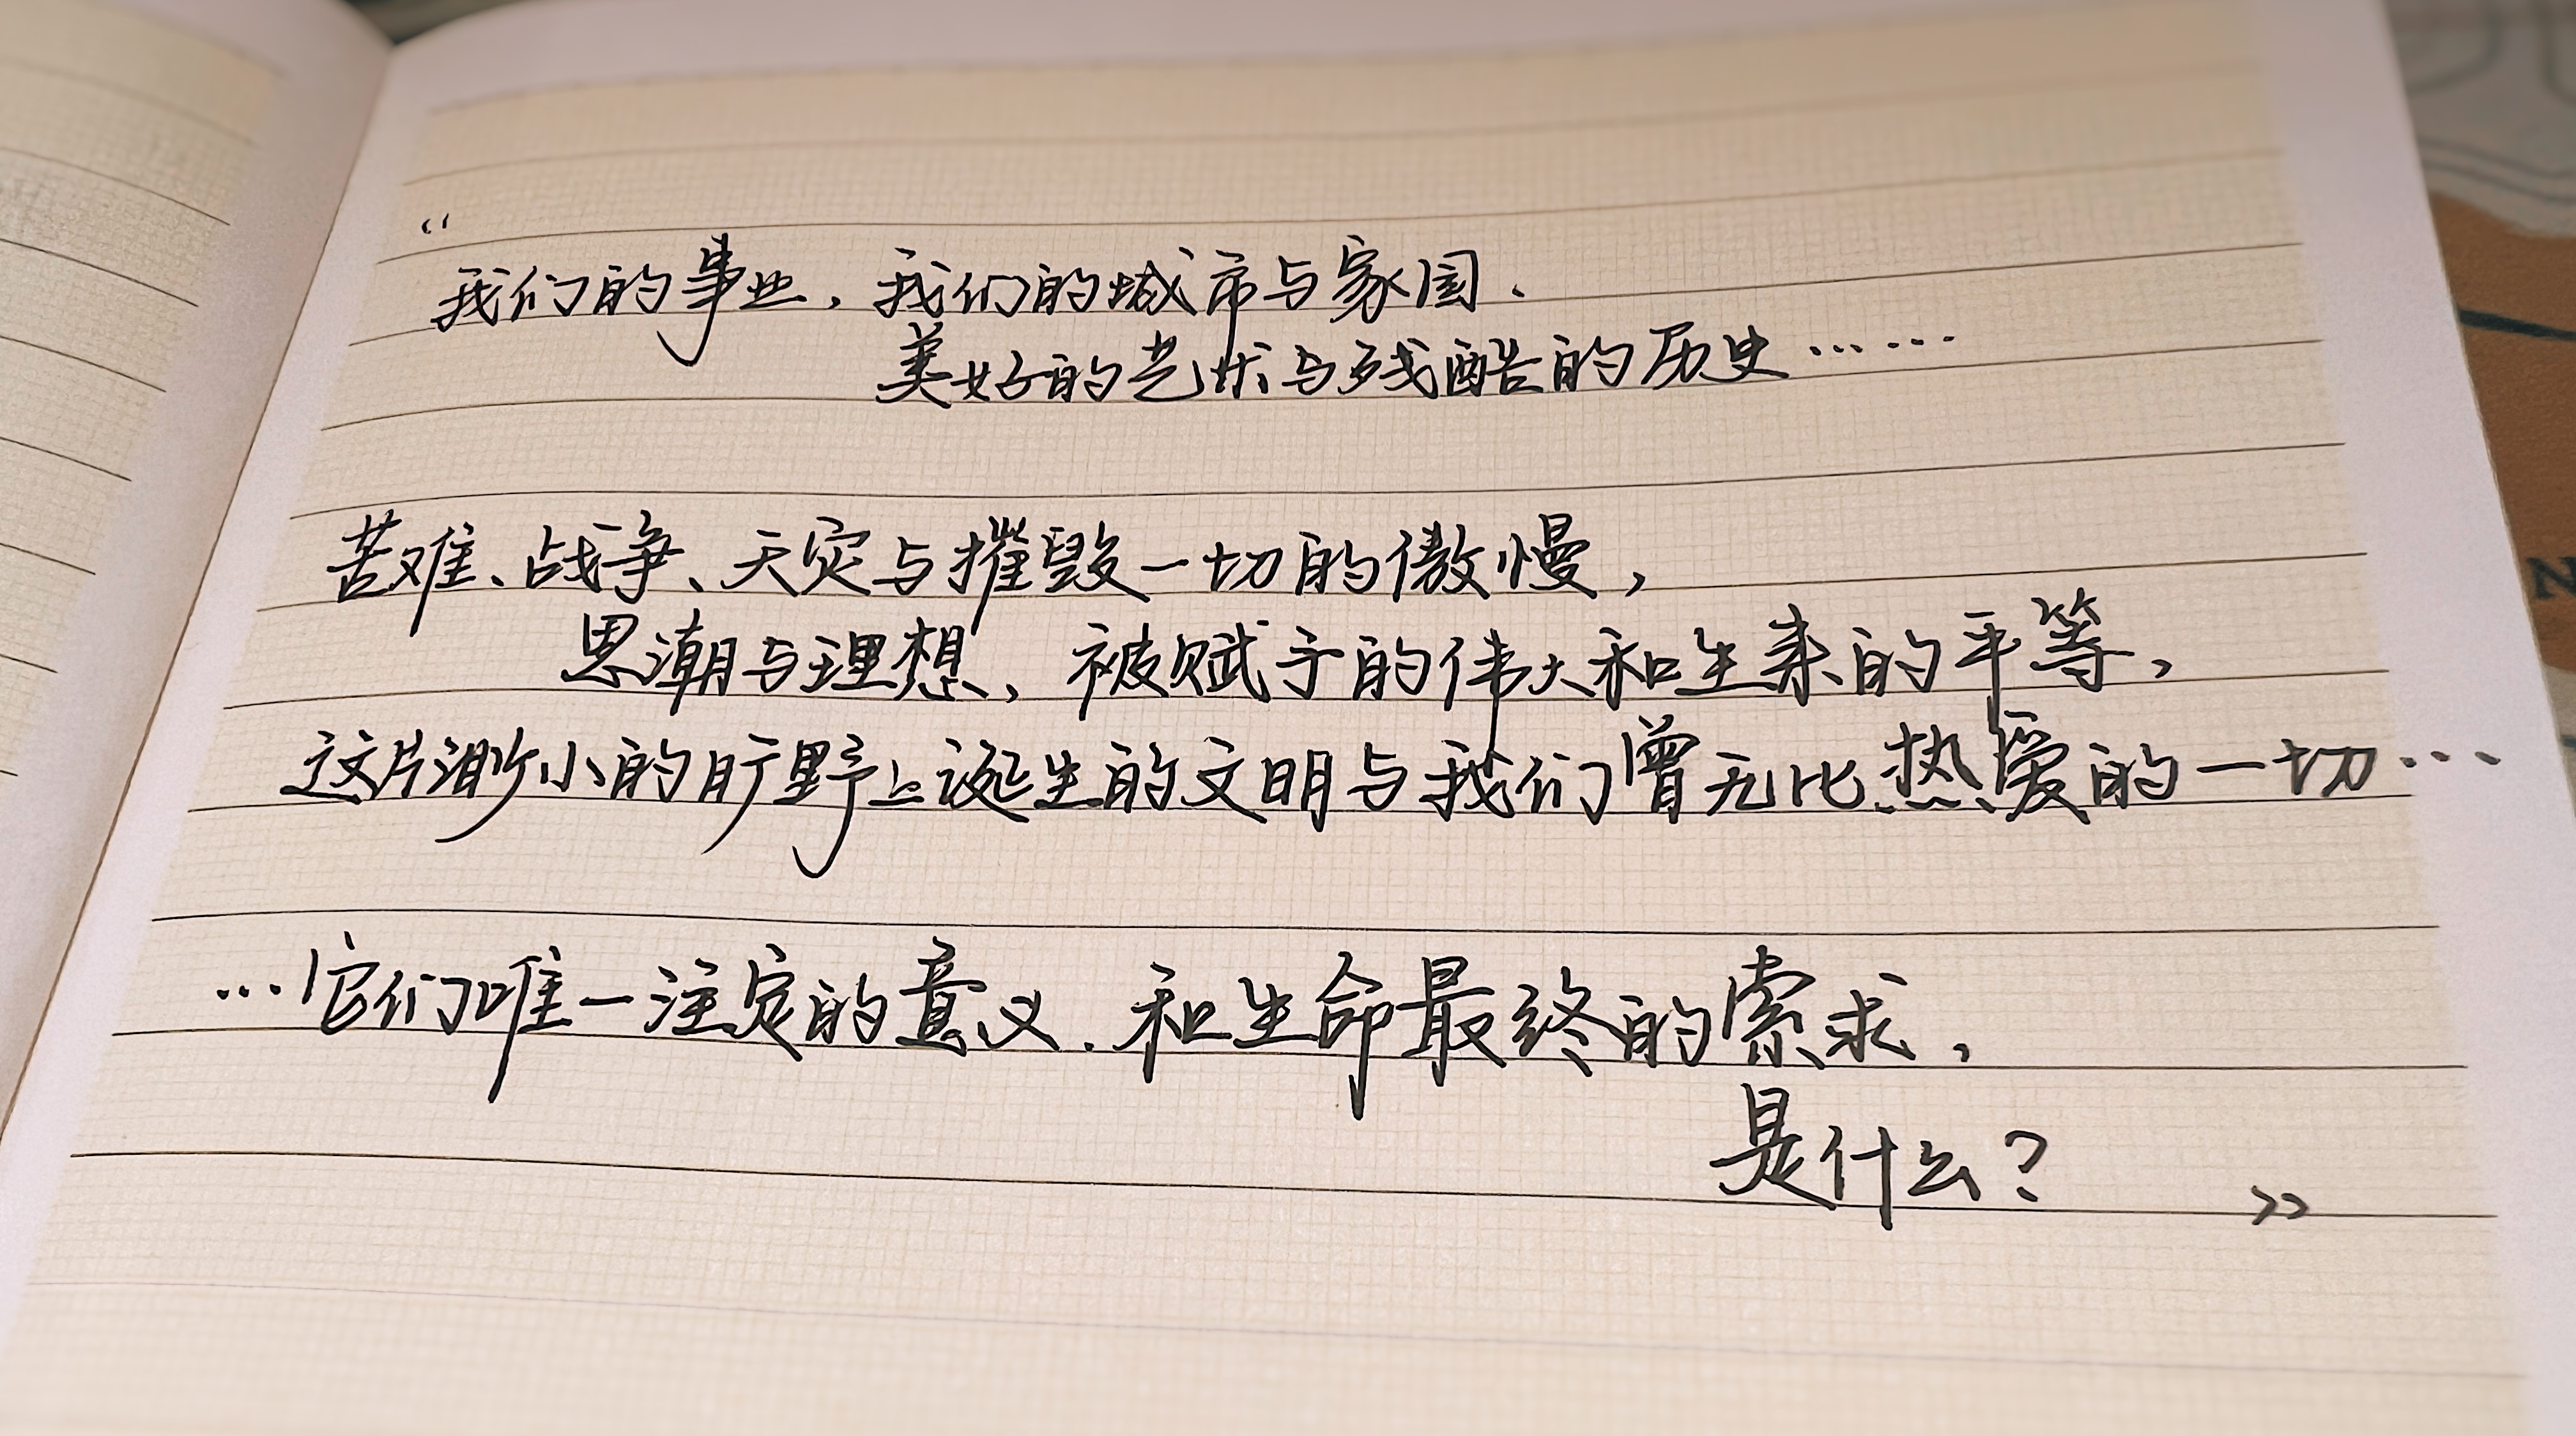 “
我们的事业，我们的城市与家园、
美好的艺术与残酷的历史……
苦难、战争、天灾与摧毁一切的傲慢，
思潮与理想，被赋予的伟大和生来的平等，
这片渺小的旷野上诞生的文明与我们曾无比热爱的一切…
…它们唯一注定的意义、和生命最终的索求，
是什么？ ”
N